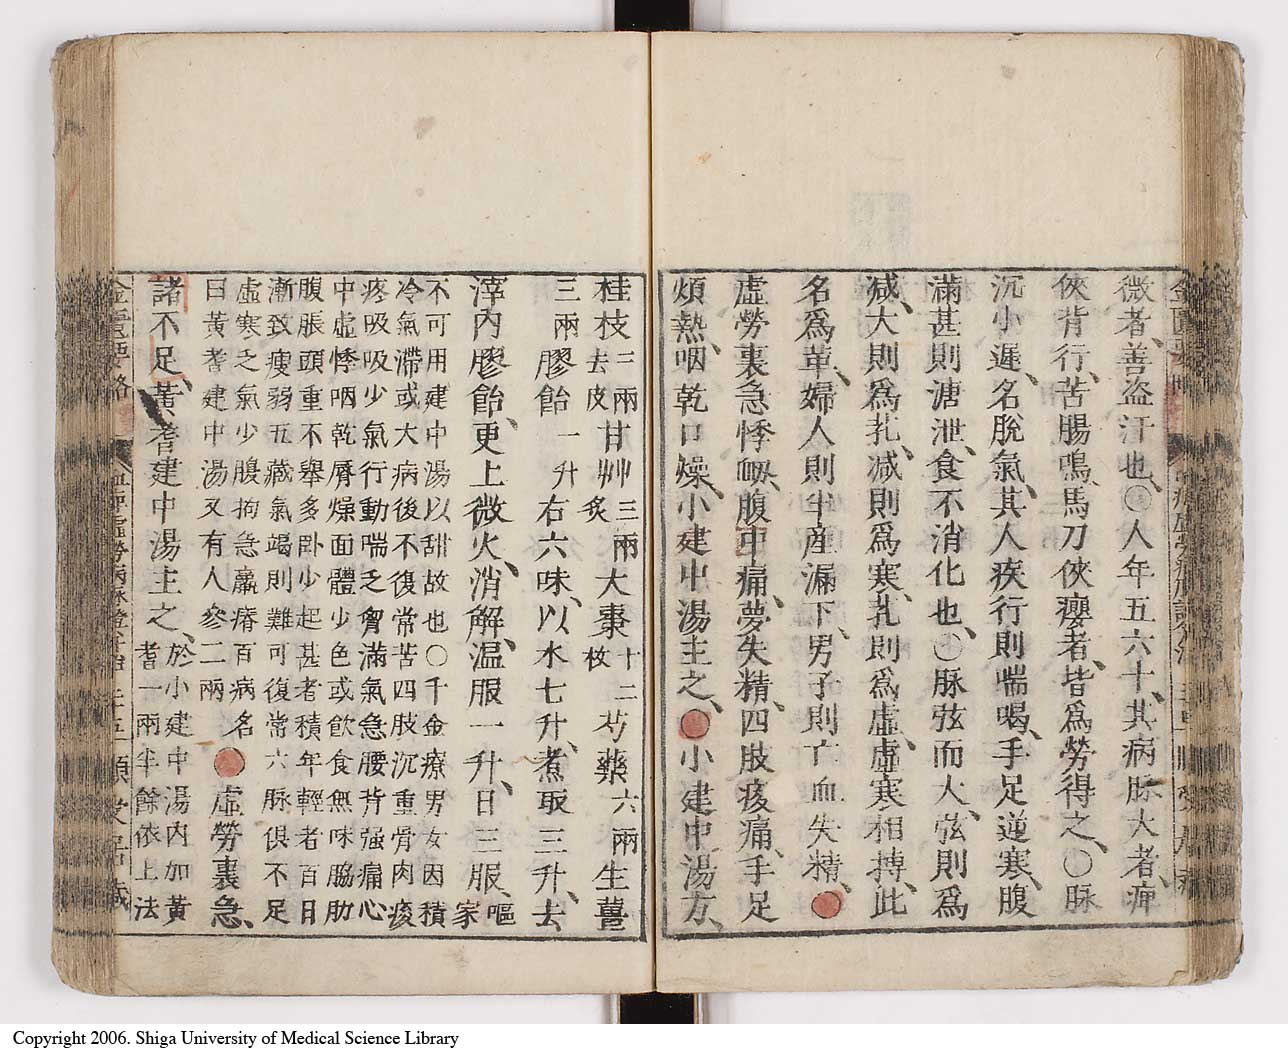 微者、善盗汗也、〇人年五六十、其病脉大者、痺
俠背行、苦腸鳴、馬刀俠癭者、皆爲勞得之、〇脉
沉小遲、名脫氣、其人疾行則喘喝、手足逆寒、腹
滿甚則溏泄、食不消化也、〇脉弦而大、弦則爲
減、大則爲芤、減則爲寒、芤則爲虛、虛寒相搏、此
名爲革、婦人則半産漏下、男子則亡血失精、
虛勞裏急悸衂、腹中痛、夢失精、四肢痠痛、手足
煩熱、咽乾口燥、小建中湯主之、小建中湯方、
桂枝三兩去皮甘艸三兩炙大棗十二枚芍藥六兩生薑
三兩膠飴一升右六味、以水七升、煮取三升、去
滓、内膠飴、更上微火、消解、温服一升、日三服、嘔家
不可用建中湯以甜故也〇千金療男女因積
冷氣滯或大病後不復常苦四肢沉重骨肉痠
疼吸吸少氣行動喘乏胷滿氣急腰背强痛心
中虛悸咽乾脣燥面體少色或飮食無味脇肋
腹脹頭重不擧多臥少起甚者積年輕者百日
漸致瘦弱五藏氣竭則難可復常六脉俱不足
虛寒乏氣少腹拘急羸瘠百病名
曰黃耆建中湯又有人參二兩
虛勞裏急、
諸不足、黃耆建中湯主之、於小建中湯内加黃
耆一兩半餘依上法
金匱要略
血痺虛勞病脉證